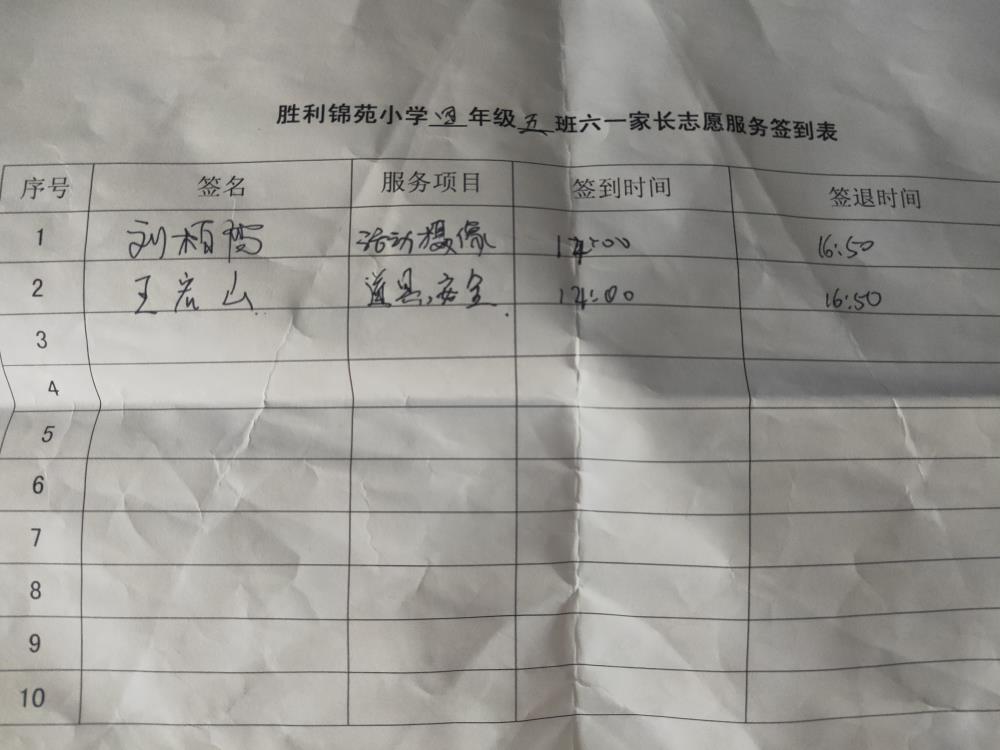 胜利锦苑小学四年级五班六一家长志愿服务签到表
序号 签名 服务项目 签到时间 签退时间
1 刘柏 活动摄像 14:00 16:50
2 王宏山 道具、安全 14:00 16:50
3
4
5
6
7
8
9
10